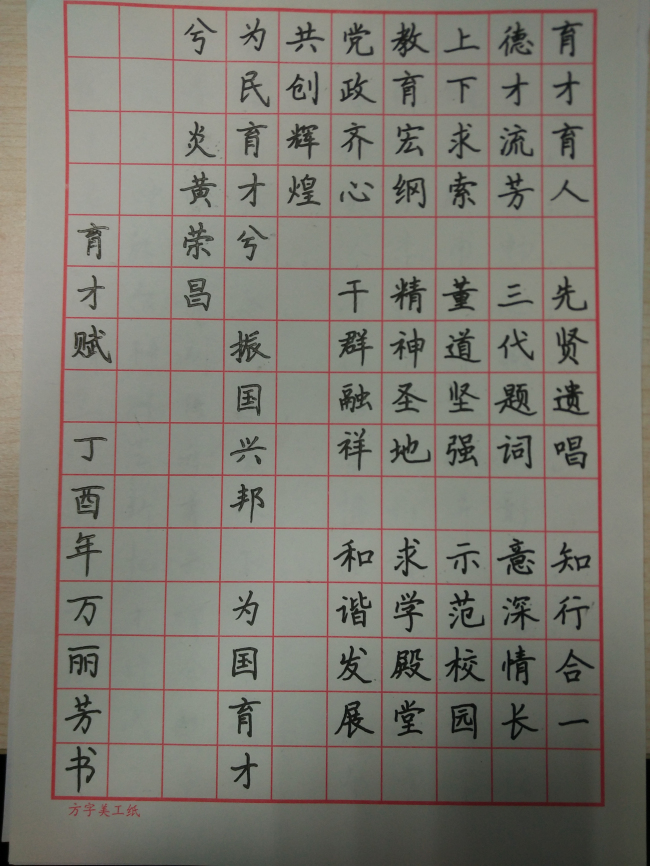 育才育人 先贤遗唱 知行合一
德才流芳 三代题词 意深情长
上下求索 董道坚强 示范校园
教育宏纲 精神圣地 求学殿堂
党政齐心 干群融祥 和谐发展
共创辉煌
为民育才兮 振国兴邦 为国育才
兮 炎黄荣昌
育才赋 丁酉年万丽芳书
方字美工纸